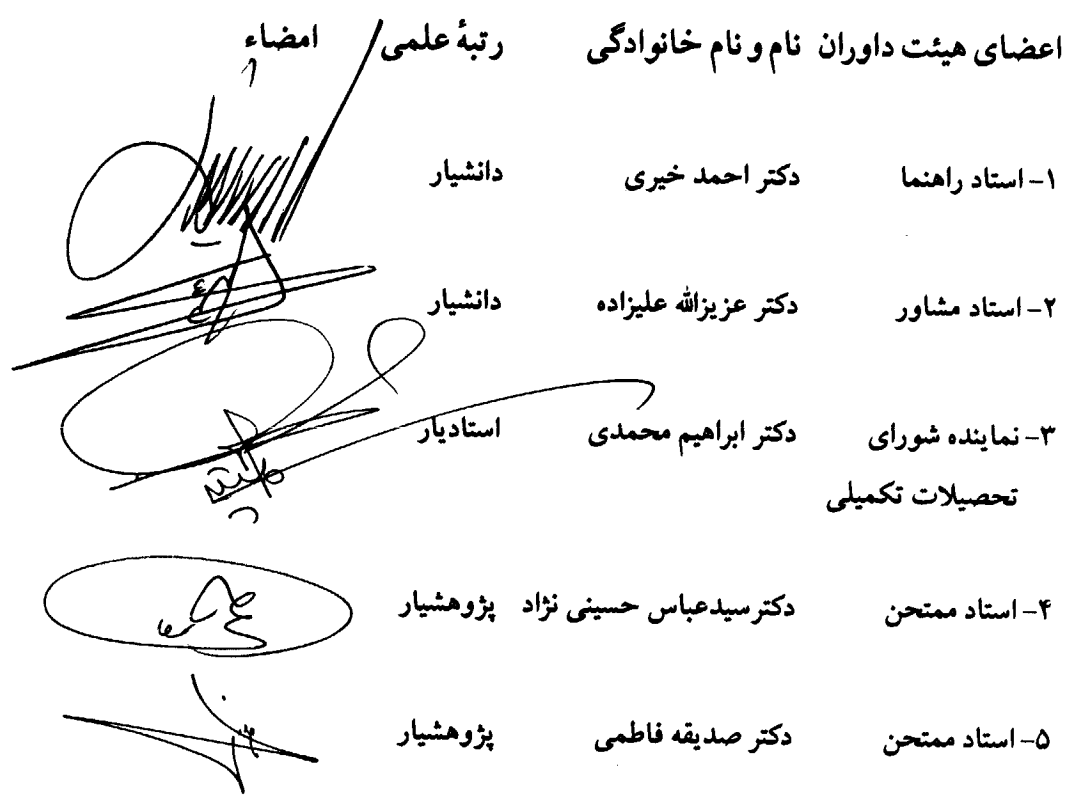 اعضای هیئت داوران نام و نام خانوادگی رتبهٔ علمی امضاء
۱- استاد راهنما دکتر احمد خیری دانشیار
۲- استاد مشاور دکتر عزیزالله علیزاده دانشیار
۳- نماینده شورای دکتر ابراهیم محمدی استادیار
تحصیلات تکمیلی
۴- استاد ممتحن دکترسیدعباس حسینی نژاد پژوهشیار
۵- استاد ممتحن دکتر صدیقه فاطمی پژوهشیار